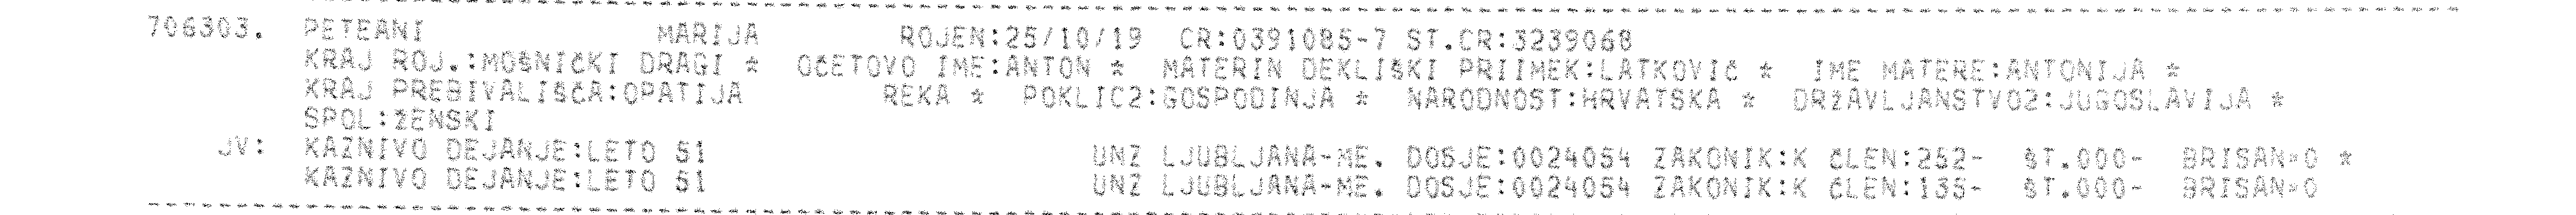 706303. PETEANI MARIJA ROJEN:25/10/19 CR:0391085-7 ST.CR:3239068
KRAJ ROJ.:MOŠNIČKI DRAGI * OČETOVO IME:ANTON * MATERIN DEKLIŠKI PRIIMEK:LATKOVIČ * IME MATERE:ANTONIJA *
KRAJ PREBIVALIŠČA:OPATIJA REKA * POKLIC2:GOSPODINJA * NARODNOST:HRVATSKA * DRŽAVLJANSTVO2:JUGOSLAVIJA *
SPOL:ŽENSKI
JV: KAZNIVO DEJANJE:LETO 51 UNZ LJUBLJANA-ME. DOSJE:0024054 ZAKONIK:K ČLEN:252- ŠT.000- BRISAN=0 *
KAZNIVO DEJANJE:LETO 51 UNZ LJUBLJANA-ME. DOSJE:0024054 ZAKONIK:K ČLEN:135- ŠT.000- BRISAN=0